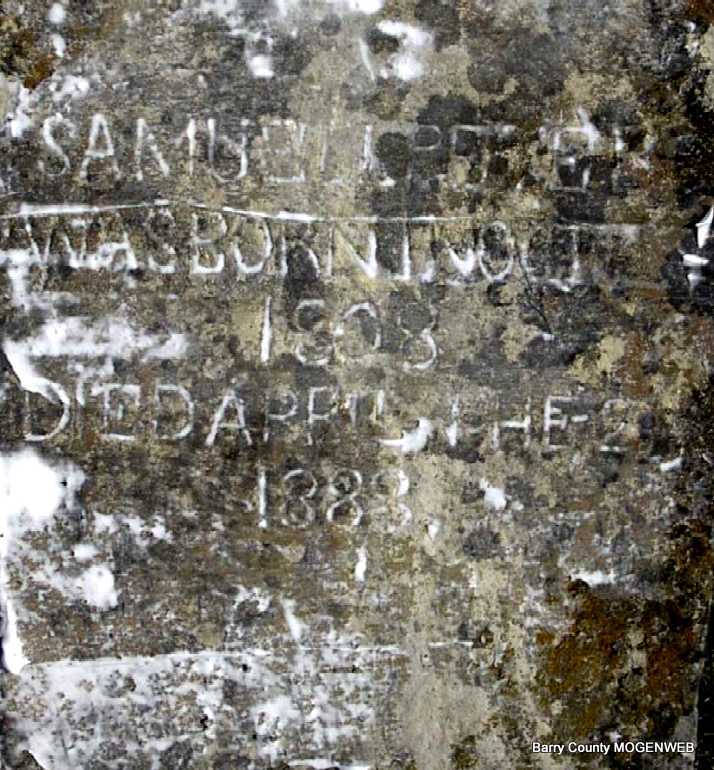 SAMUEL
WAS BORN IN OCT
1808
DIED APRIL THE 2
1883
Barry County MOGENWEB